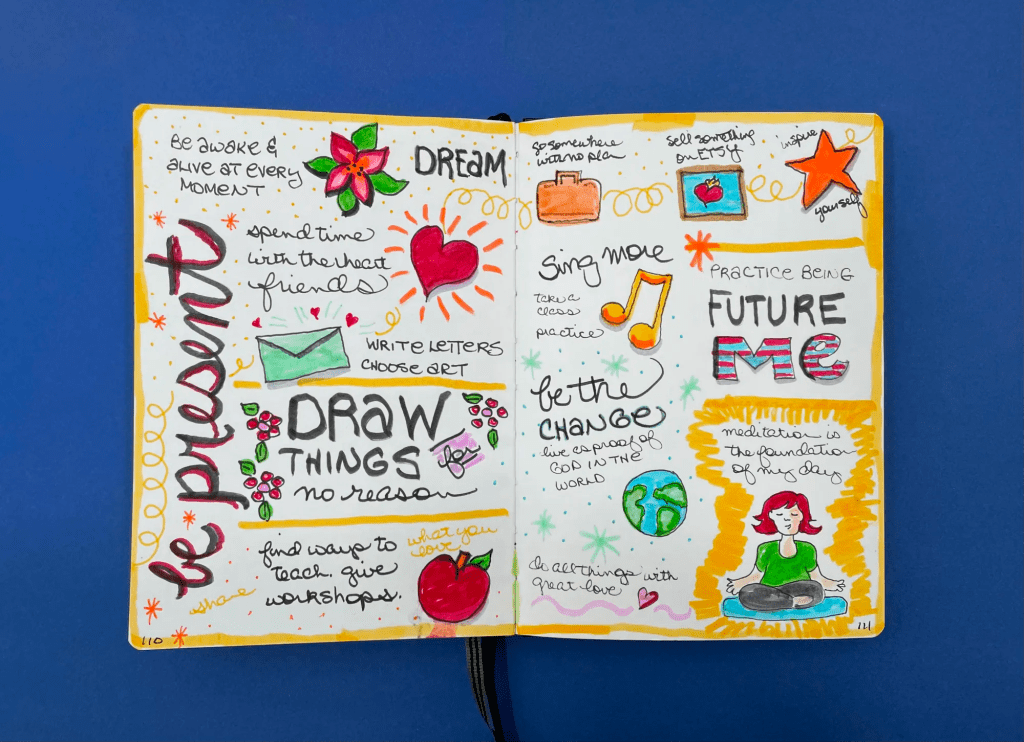 BE AWAKE &
ALIVE AT EVERY
MOMENT
DREAM
be present
spend time
with the heart
friends
WRITE LETTERS
CHOOSE ART
DRAW
THINGS for
no reason
find ways to
teach. give
workshops.
what you
love
share
110
go somewhere
with no plan
sell something
on ETSY
inspire
yourself
Sing more
take a
class
practice
PRACTICE BEING
FUTURE
Me
be the
CHANGE
live as proof of
GOD IN THE
WORLD
meditation is
the foundation
of my day
do all things with
great love
111